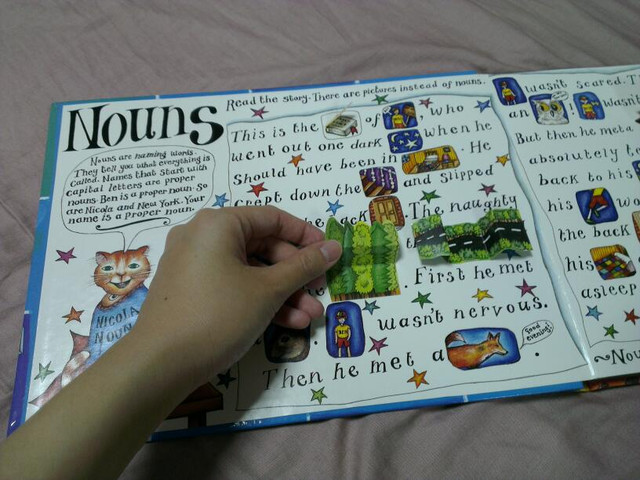 Nouns
Nouns are naming words.
They tell you what everything is
called. Names that start with
capital letters are proper
nouns. Ben is a proper noun. So
are Nicola and New York. Your
name is a proper noun.
NICOLA
NOUN
Read the story. There are pictures instead of nouns.
This is the of , who
went out one dark when he
should have been in . He
crept down the and slipped
the back . The naughty
. First he met
. wasn't nervous.
Then he met a .
Good evening!
wasn't scared. T
an ! wasn't
But then he met a
absolutely te
back to his
his wo
the back
his
asleep
~Nou